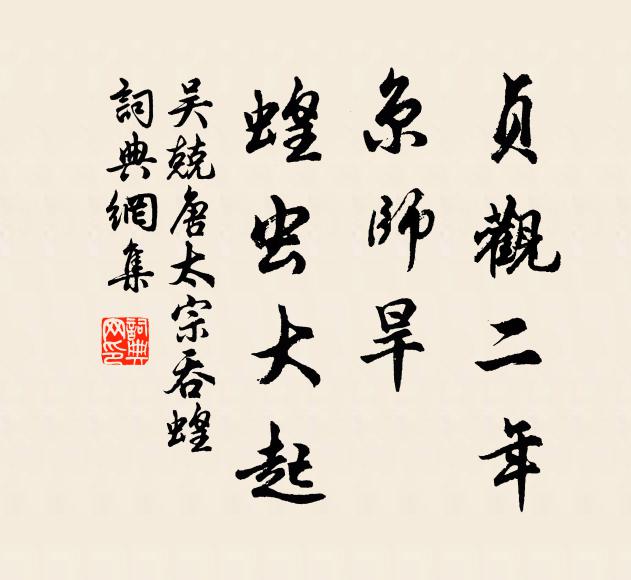 貞觀二年
京師旱
蝗虫大起
吴兢唐太宗吞蝗
詞典網集
詞典網印